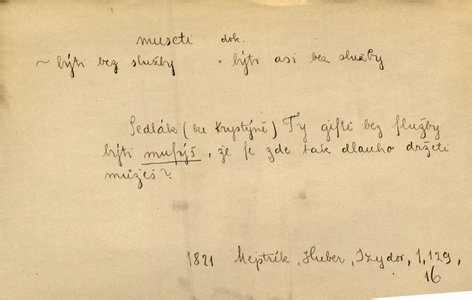 museti dok.
~ býti bez služby = býti asi bez služby
Sedlák (ke Krystýně) Ty giſtě bez ſlužby
býti muſýš, že ſe zde tak dlauho držeti
můžeš?
1821 Mejstřík, Hieber, Izydor, 1, 129,
16